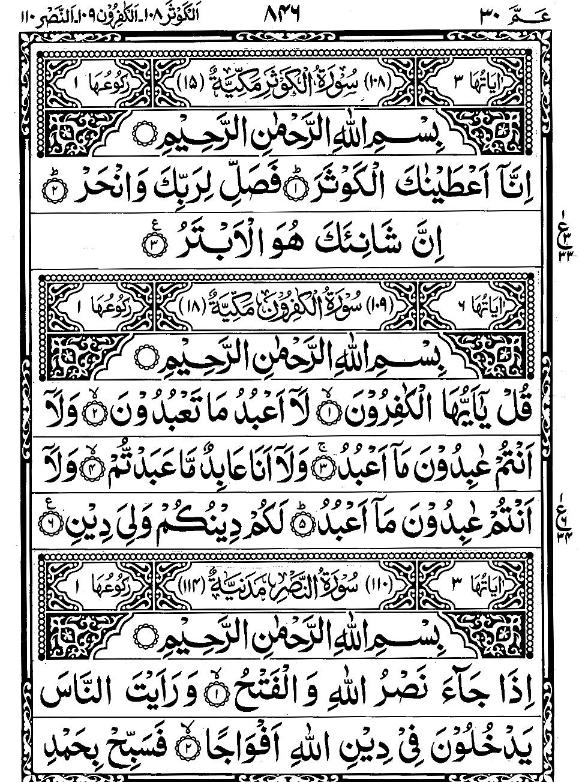 عـمّ ٣٠ ٨٤٦ الكوثر ١٠٨۔الكفرون ١٠٩۔النصر ١١٠
اٰيَاتُهَا ٣ (١٠٨) سُوْرَةُ الْكَوْثَرِ مَكِّيَّةٌ (١٥) رُكُوْعُهَا ١
بِسْمِ اللّٰهِ الرَّحْمٰنِ الرَّحِيْمِ
اِنَّاۤ اَعْطَيْنٰكَ الْكَوْثَرَ ؕ﴿١﴾ فَصَلِّ لِرَبِّكَ وَانْحَرْ ؕ﴿٢﴾
اِنَّ شَانِئَكَ هُوَ الْاَبْتَرُ ﴿٣﴾ ع
ع ١ ٣ ٣٣
اٰيَاتُهَا ٦ (١٠٩) سُوْرَةُ الْكٰفِرُوْنَ مَكِّيَّةٌ (١٨) رُكُوْعُهَا ١
بِسْمِ اللّٰهِ الرَّحْمٰنِ الرَّحِيْمِ
قُلْ يٰۤاَيُّهَا الْكٰفِرُوْنَ ۙ﴿١﴾ لَاۤ اَعْبُدُ مَا تَعْبُدُوْنَ ۙ﴿٢﴾ وَلَاۤ
اَنْتُمْ عٰبِدُوْنَ مَاۤ اَعْبُدُ ۚ﴿٣﴾ وَلَاۤ اَنَا عَابِدٌ مَّا عَبَدْتُّمْ ۙ﴿٤﴾ وَلَاۤ
اَنْتُمْ عٰبِدُوْنَ مَاۤ اَعْبُدُ ؕ﴿٥﴾ لَكُمْ دِيْنُكُمْ وَلِيَ دِيْنِ ﴿٦﴾ ع
ع ١ ٦ ٣٤
اٰيَاتُهَا ٣ (١١٠) سُوْرَةُ النَّصْرِ مَدَنِيَّةٌ (١١٤) رُكُوْعُهَا ١
بِسْمِ اللّٰهِ الرَّحْمٰنِ الرَّحِيْمِ
اِذَا جَآءَ نَصْرُ اللّٰهِ وَالْفَتْحُ ۙ﴿١﴾ وَرَاَيْتَ النَّاسَ
يَدْخُلُوْنَ فِيْ دِيْنِ اللّٰهِ اَفْوَاجًا ۙ﴿٢﴾ فَسَبِّحْ بِحَمْدِ